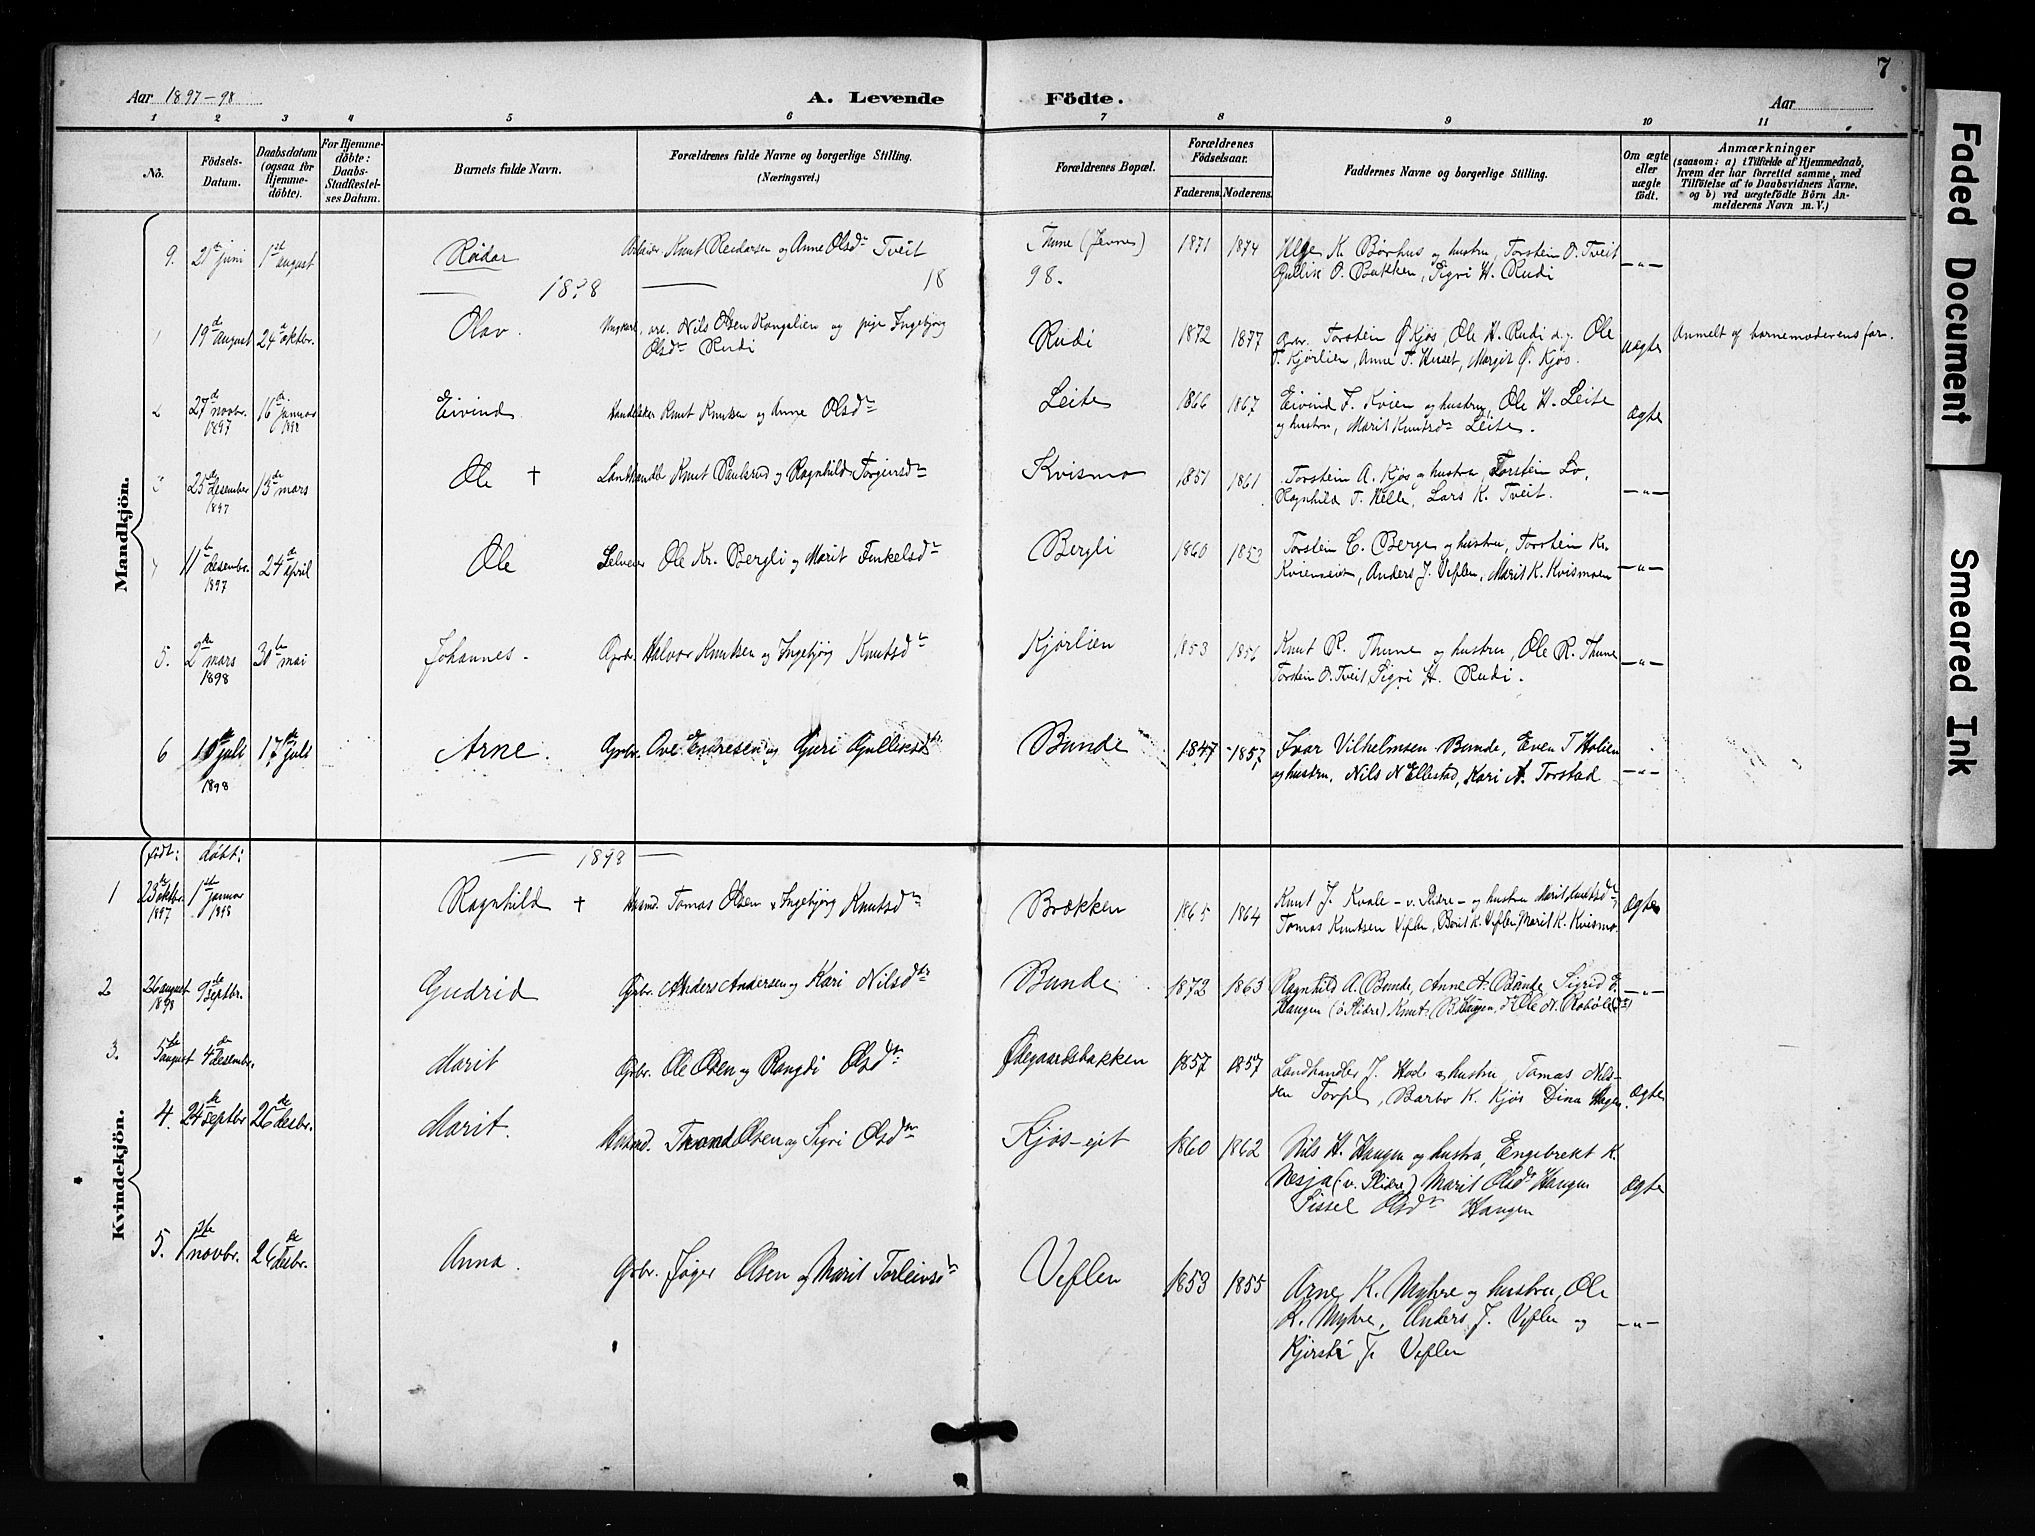 7
Aar 1897-98
A. Levende Födte.
Aar
1 2 3 4 5 6 7 8 9 10 11
No.
Födsels-Datum.
Daabsdatum (ogsaa for Hjemmedöbte).
For Hjemmedöbte: Daabs-Stadfæstelses Datum.
Barnets fulde Navn.
Forældrenes fulde Navne og borgerlige Stilling. (Næringsvei.)
Forældrenes Bopæl.
Forældrenes Födselsaar.
Faderens. Moderens.
Faddernes Navne og borgerlige Stilling.
Om ægte eller uægte födt.
Anmærkninger
(saasom: a) i Tilfælde af Hjemmedaab, hvem der har forrettet samme, med Tilföielse af to Daabsvidners Navne, og b) ved uægtefödte Börn Anmelderens Navn m. V.)
Mandkjön.
9. 21de juni 1ste august Reidar Knut Reidarsen og Anne Olsdr Tveit Thune (Jevnes) 1871 1874 Helge K. Børhus og hustru, Torstein O. Tveit
Gullik O. Bakken, Sigri H. Rudi —"—
— 1898 — 18 98.
1 19de august 24de oktbr. Olav. Ungkarl, arb. Nils Olsen Kongslien og pige Ingebjørg
Olsdr Rudi Rudi 1872 1877 Grbr. Torstein O Kjøs, Ole H. Rudi d.y. Ole
T. Kjørlien, Anne T. Huset, Margit O. Kjøs. uægte Anmelt af barnemoderens far.
2 27de novbr. 1897 16de januar 1898 Eivind Knut Knutsen og Anne Olsdr Leite 1866 1867 Eivind F. Kvien og hustru, Ole H. Leite
og hustru, Marit Knutsdr Leite. ægte
3 25de desember 1897 13de mars Ole † Landhandler Knut Paulsrud og Ragnhild Torgeirsdr Kvismo 1851 1861 Torstein A. Kjøs og hustru, Torstein Lo,
Ragnhild T. Helle, Lars K. Tveit. —"—
11te desembr. 1897 24de april Ole Selveier Ole Kr. Bergli og Marit Finkelsdr Bergli 1860 1852 Torstein C. Berge og hustru, Torstein Kr.
Kvienseiet, Anders J. Veflen, Marit K. Kvismoen —"—
5. 2den mars 1898 30te mai Johannes. Grbr. Halvor Knutsen og Ingebjørg Knutsdr Kjørlien 1853 1856 Knut R. Thune og hustru, Ole R. Thune
Torstein O. Tveit, Sigri H. Rudi. —"—
6 10de juli 1898 17de juli Arne. Grbr. Ove Endresen og Guri Gulliksdtr. Bunde 1847 1857 Ivar Vilhelmsen Bunde, Even T Holien
og hustru, Nils N Ellestad, Kari A. Torstad —"—
Kvindekjön.
født: døbt: — 1898 —
1 23de oktbr. 1897 1ste januar 1898 Ragnhild † Husmd. Tomas Olsen og Ingebjørg Knutsdr Brækken 1865 1864 Knut J. Kvale - v. Slidre - og hustru Marit Knutsdr,
Tomas Knutsen Veflen, Berit K. Veflen, Marit K. Kvismo ægte
2 26 august 1898 9de septbr. Gudrid Grbr. Anders Andersen og Kari Nilsdtr Bunde 1872 1863 Ragnhild A. Bunde, Anne A. Bunde, Sigrid E.
Haugen (ø. Slidre) Knut B. Haugen, Ole N. Robøle —"—
3. 5te august 4de desembr. Marit Grbr. Ole Olsen og Rangdi Olsdtr Ødegaardsbakken 1857 1857 Landhandler J. Hove og hustru, Tomas Nils-
sen Torpe, Barbo K. Kjøs Dina Hagen. ægte
4. 24de septbr 26de desbr. Marit. Husmd. Trond Olsen og Sigri Olsdtr Kjøs-eiet 1860 1862 Nils H. Haugen og hustru, Engebrekt K.
Nesja (v. Slidre) Marit Olsdr Haugen
Sissel Olsdtr Haugen ægte
5. 1ste novbr. 26de desbr. Anna. Grbr. Jøger Olsen og Marit Torleivsdtr Veflen 1853 1855 Arne K. Myhre og hustru, Ole
K. Myhre, Anders J. Veflen og
Kjersti J. Veflen —"—
Faded Document
Smeared Ink